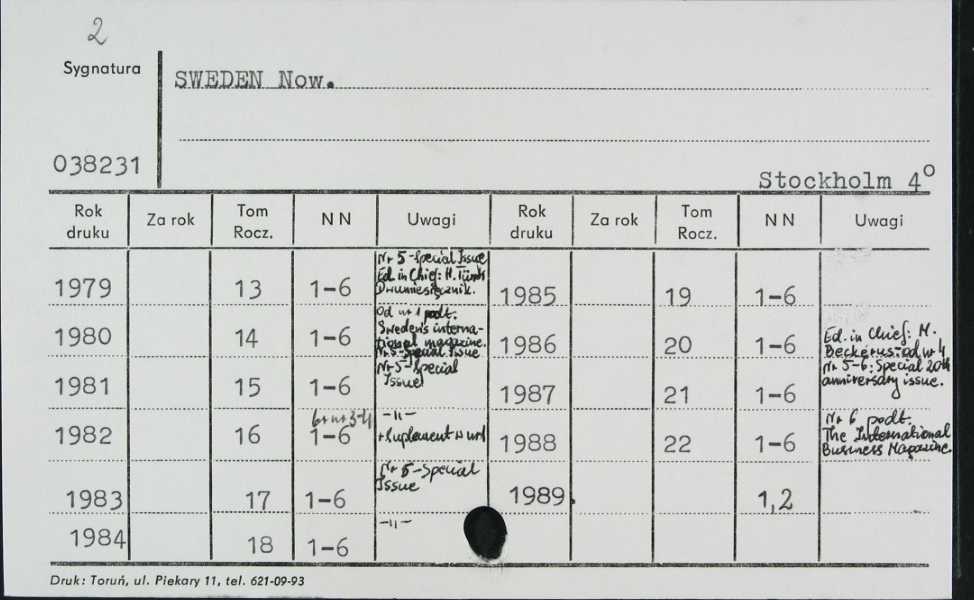 2
Sygnatura
SWEDEN Now.
038231
Stockholm 4°
Rok druku Za rok Tom Rocz. N N Uwagi Rok druku Za rok Tom Rocz. N N Uwagi
1979 13 1-6 Nr 5-Special Issue
Ed. in Chief: H.
Dwumiesięcznik.
1985 19 1-6
1980 14 1-6 Od nr 1 podt.
Sweden's interna-
tional magazine.
Nr 5-Special Issue
1986 20 1-6 Ed. in Chief: M.
Beckérus: od nr 4
1981 15 1-6 Nr 5-Special
Issue
1987 21 1-6 Nr 5-6: Special 20th
anniversary issue.
1982 16 1-6 nr 3-4 -"-
+Suplement w
1988 22 1-6 Nr 6 podt.
The International
Business Magazine.
1983 17 1-6 Nr 5-Special
Issue
1989. 1,2
1984 18 1-6 -"-
Druk: Toruń, ul. Piekary 11, tel. 621-09-93